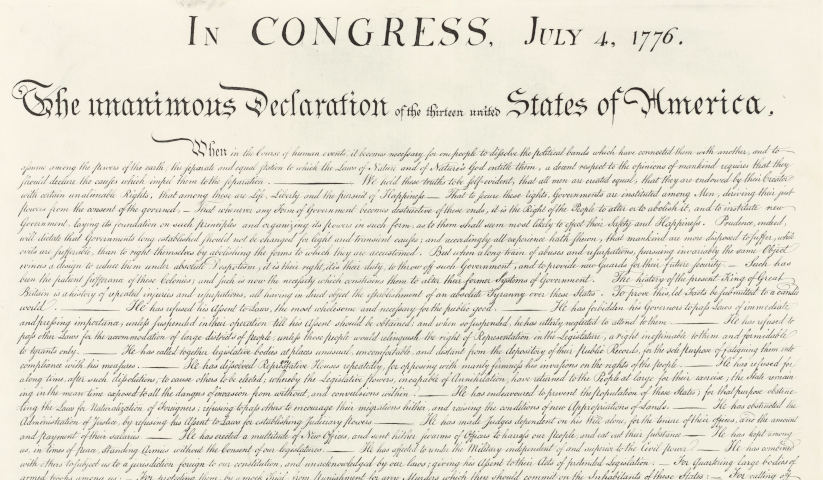 IN CONGRESS, JULY 4, 1776.
The unanimous Declaration of the thirteen united States of America,
When in the Course of human events, it becomes necessary for one people to dissolve the political bands which have connected them with another, and to
assume among the powers of the earth, the separate and equal station to which the Laws of Nature and of Nature's God entitle them, a decent respect to the opinions of mankind requires that they
should declare the causes which impel them to the separation. ——— We hold these truths to be self-evident, that all men are created equal, that they are endowed by their Creator
with certain unalienable Rights, that among these are Life, Liberty and the pursuit of Happiness.— That to secure these rights, Governments are instituted among Men, deriving their just
powers from the consent of the governed, — That whenever any Form of Government becomes destructive of these ends, it is the Right of the People to alter or to abolish it, and to institute new
Government, laying its foundation on such principles and organizing its powers in such form, as to them shall seem most likely to effect their Safety and Happiness. Prudence, indeed,
will dictate that Governments long established should not be changed for light and transient causes; and accordingly all experience hath shewn, that mankind are more disposed to suffer, while
evils are sufferable, than to right themselves by abolishing the forms to which they are accustomed. But when a long train of abuses and usurpations, pursuing invariably the same Object
evinces a design to reduce them under absolute Despotism, it is their right, it is their duty, to throw off such Government, and to provide new Guards for their future security.— Such has
been the patient sufferance of these Colonies; and such is now the necessity which constrains them to alter their former Systems of Government. The history of the present King of Great
Britain is a history of repeated injuries and usurpations, all having in direct object the establishment of an absolute Tyranny over these States. To prove this, let Facts be submitted to a candid
world. ——— He has refused his Assent to Laws, the most wholesome and necessary for the public good. ——— He has forbidden his Governors to pass Laws of immediate
and pressing importance, unless suspended in their operation till his Assent should be obtained; and when so suspended, he has utterly neglected to attend to them. ——— He has refused to
pass other Laws for the accommodation of large districts of people, unless those people would relinquish the right of Representation in the Legislature, a right inestimable to them and formidable
to tyrants only. ——— He has called together legislative bodies at places unusual, uncomfortable, and distant from the depository of their Public Records, for the sole purpose of fatiguing them into
compliance with his measures. ——— He has dissolved Representative Houses repeatedly, for opposing with manly firmness his invasions on the rights of the people. ——— He has refused for
a long time, after such dissolutions, to cause others to be elected; whereby the Legislative powers, incapable of Annihilation, have returned to the People at large for their exercise; the State remain-
ing in the mean time exposed to all the dangers of invasion from without, and convulsions within. ——— He has endeavoured to prevent the population of these States; for that purpose obstruc-
ting the Laws for Naturalization of Foreigners; refusing to pass others to encourage their migrations hither, and raising the conditions of new Appropriations of Lands. ——— He has obstructed the
Administration of Justice, by refusing his Assent to Laws for establishing Judiciary powers. ——— He has made Judges dependent on his Will alone, for the tenure of their offices, and the amount
and payment of their salaries. ——— He has erected a multitude of New Offices, and sent hither swarms of Officers to harrass our people, and eat out their substance. ——— He has kept among
us, in times of peace, Standing Armies without the Consent of our legislatures. ——— He has affected to render the Military independent of and superior to the Civil power. ——— He has combined
with others to subject us to a jurisdiction foreign to our constitution, and unacknowledged by our laws; giving his Assent to their Acts of pretended Legislation: — For Quartering large bodies of
armed troops among us: — For protecting them, by a mock Trial, from punishment for any Murders which they should commit on the Inhabitants of these States: — For cutting off